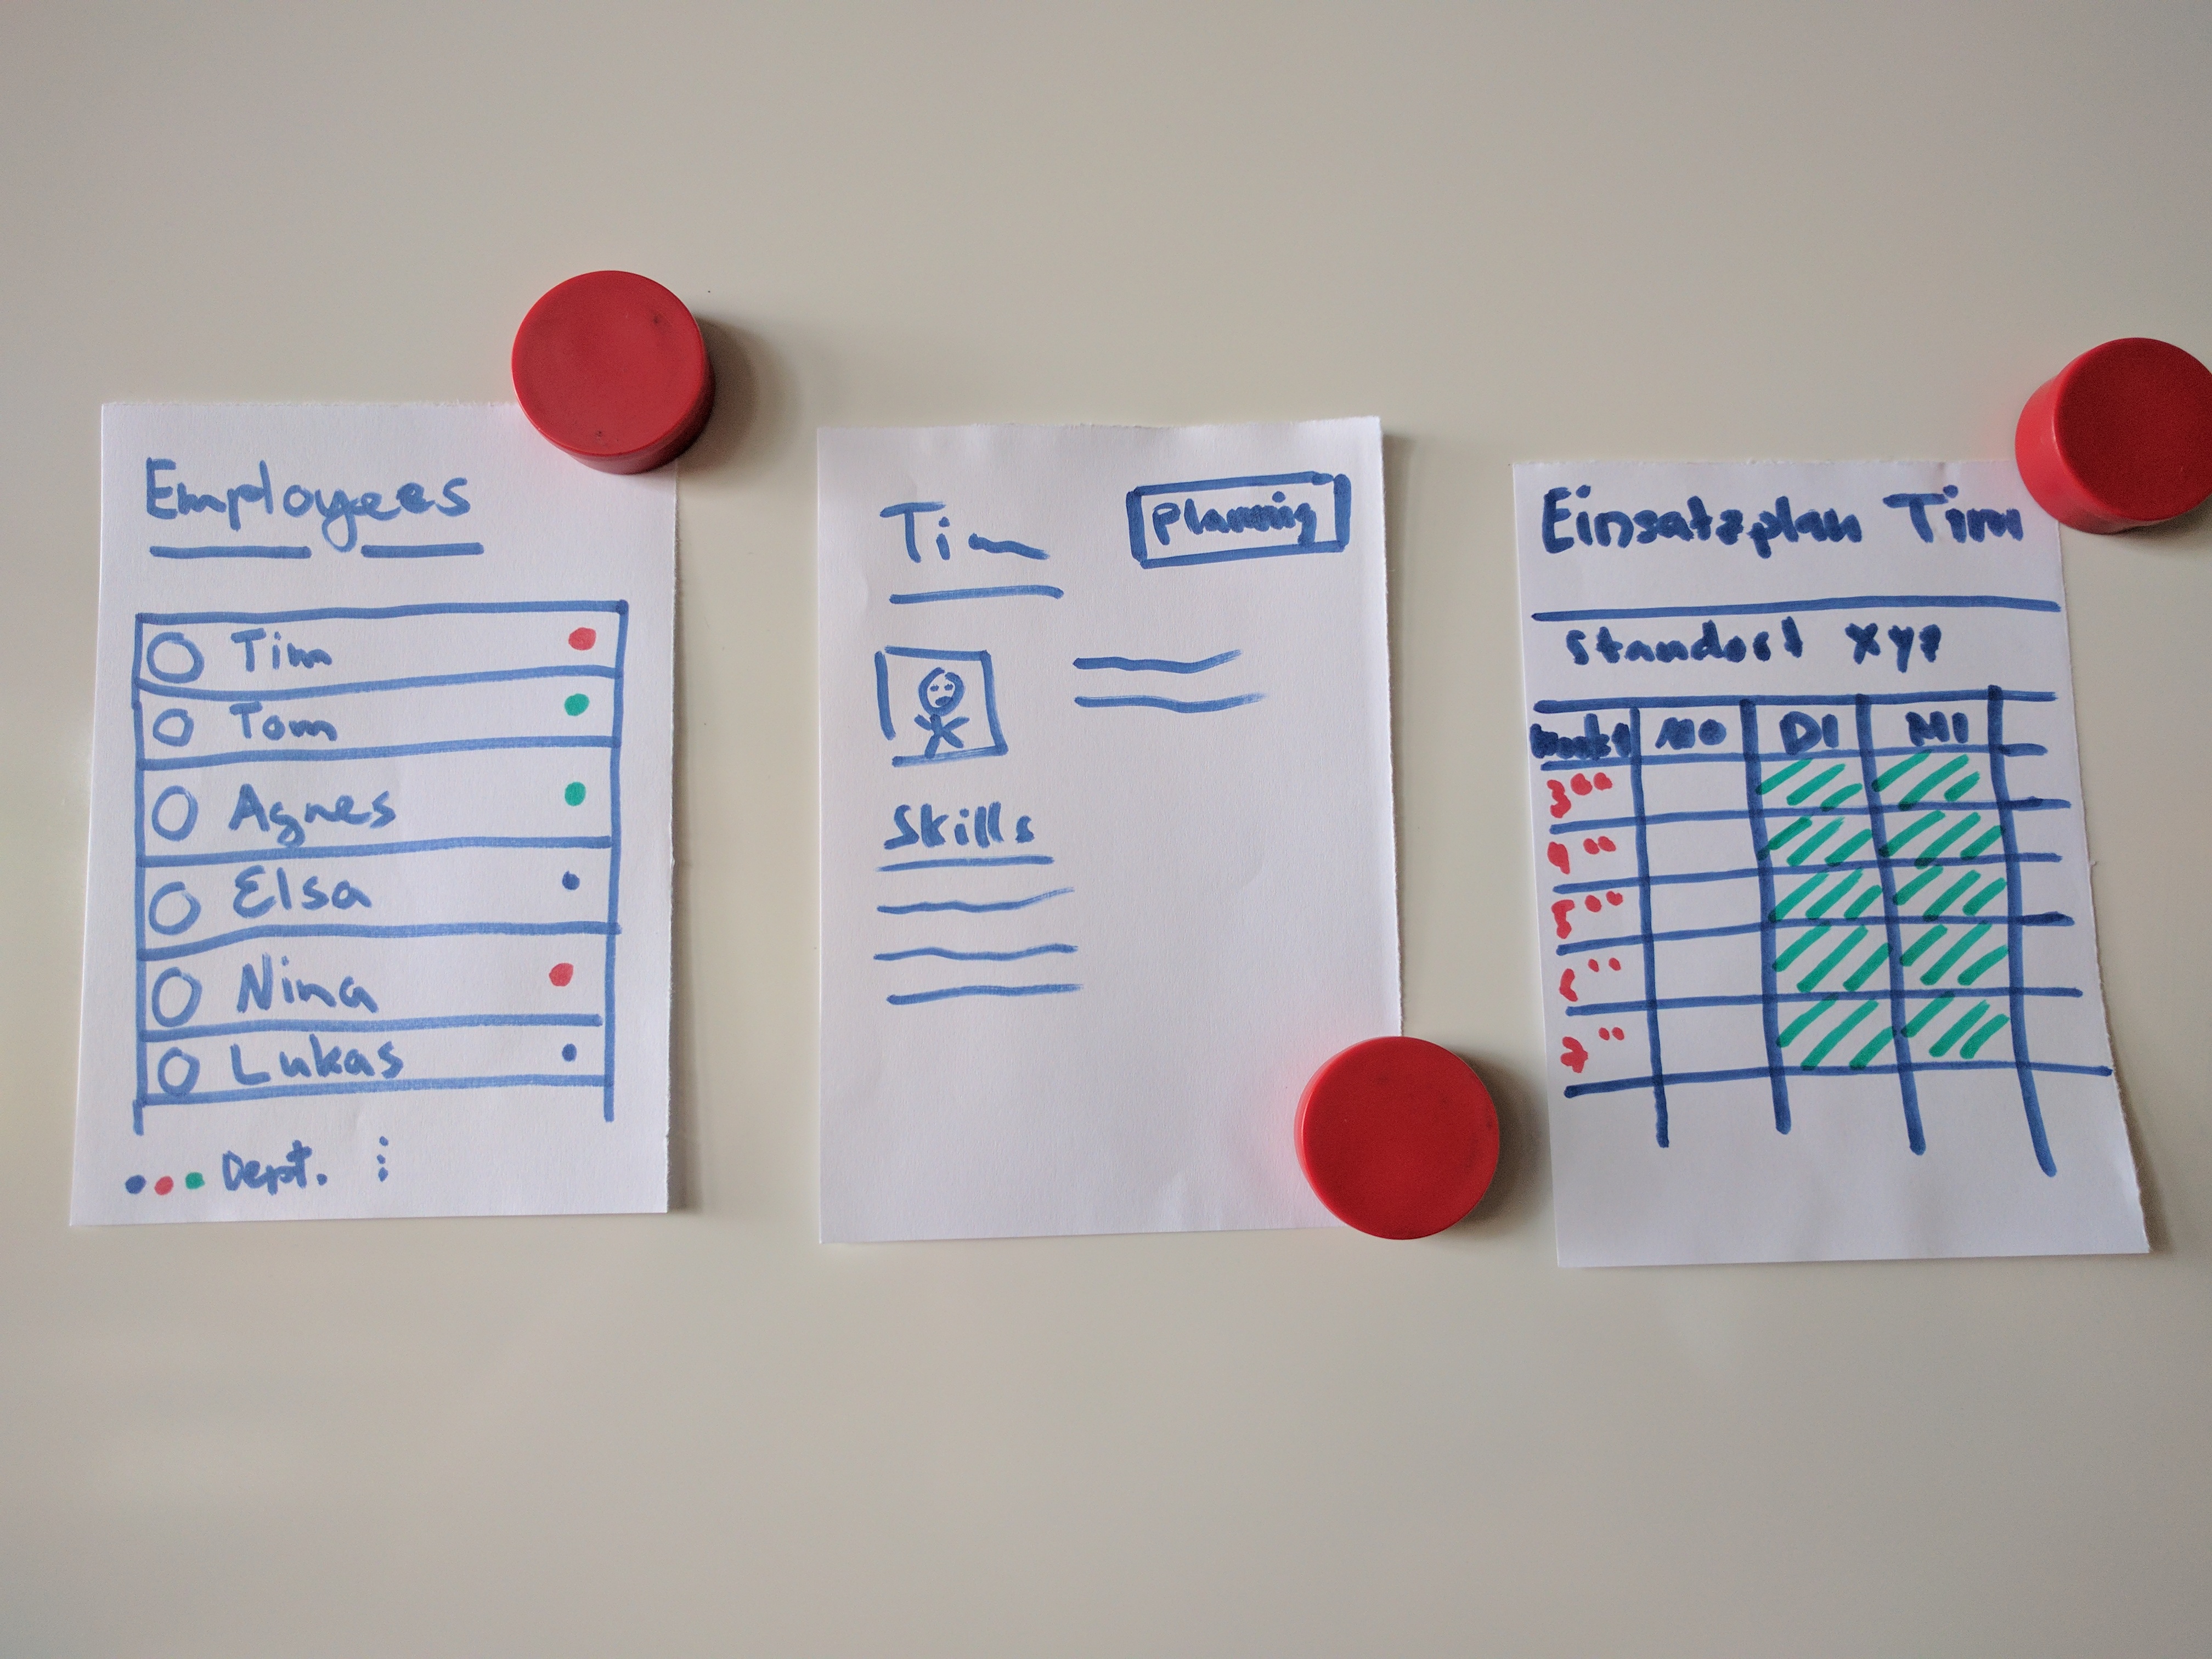 Employees
Tim
Tom
Agnes
Elsa
Nina
Lukas
Dept. :
Tim
Planning
Skills
Einsatzplan Tim
Standort xyz
MO DI MI